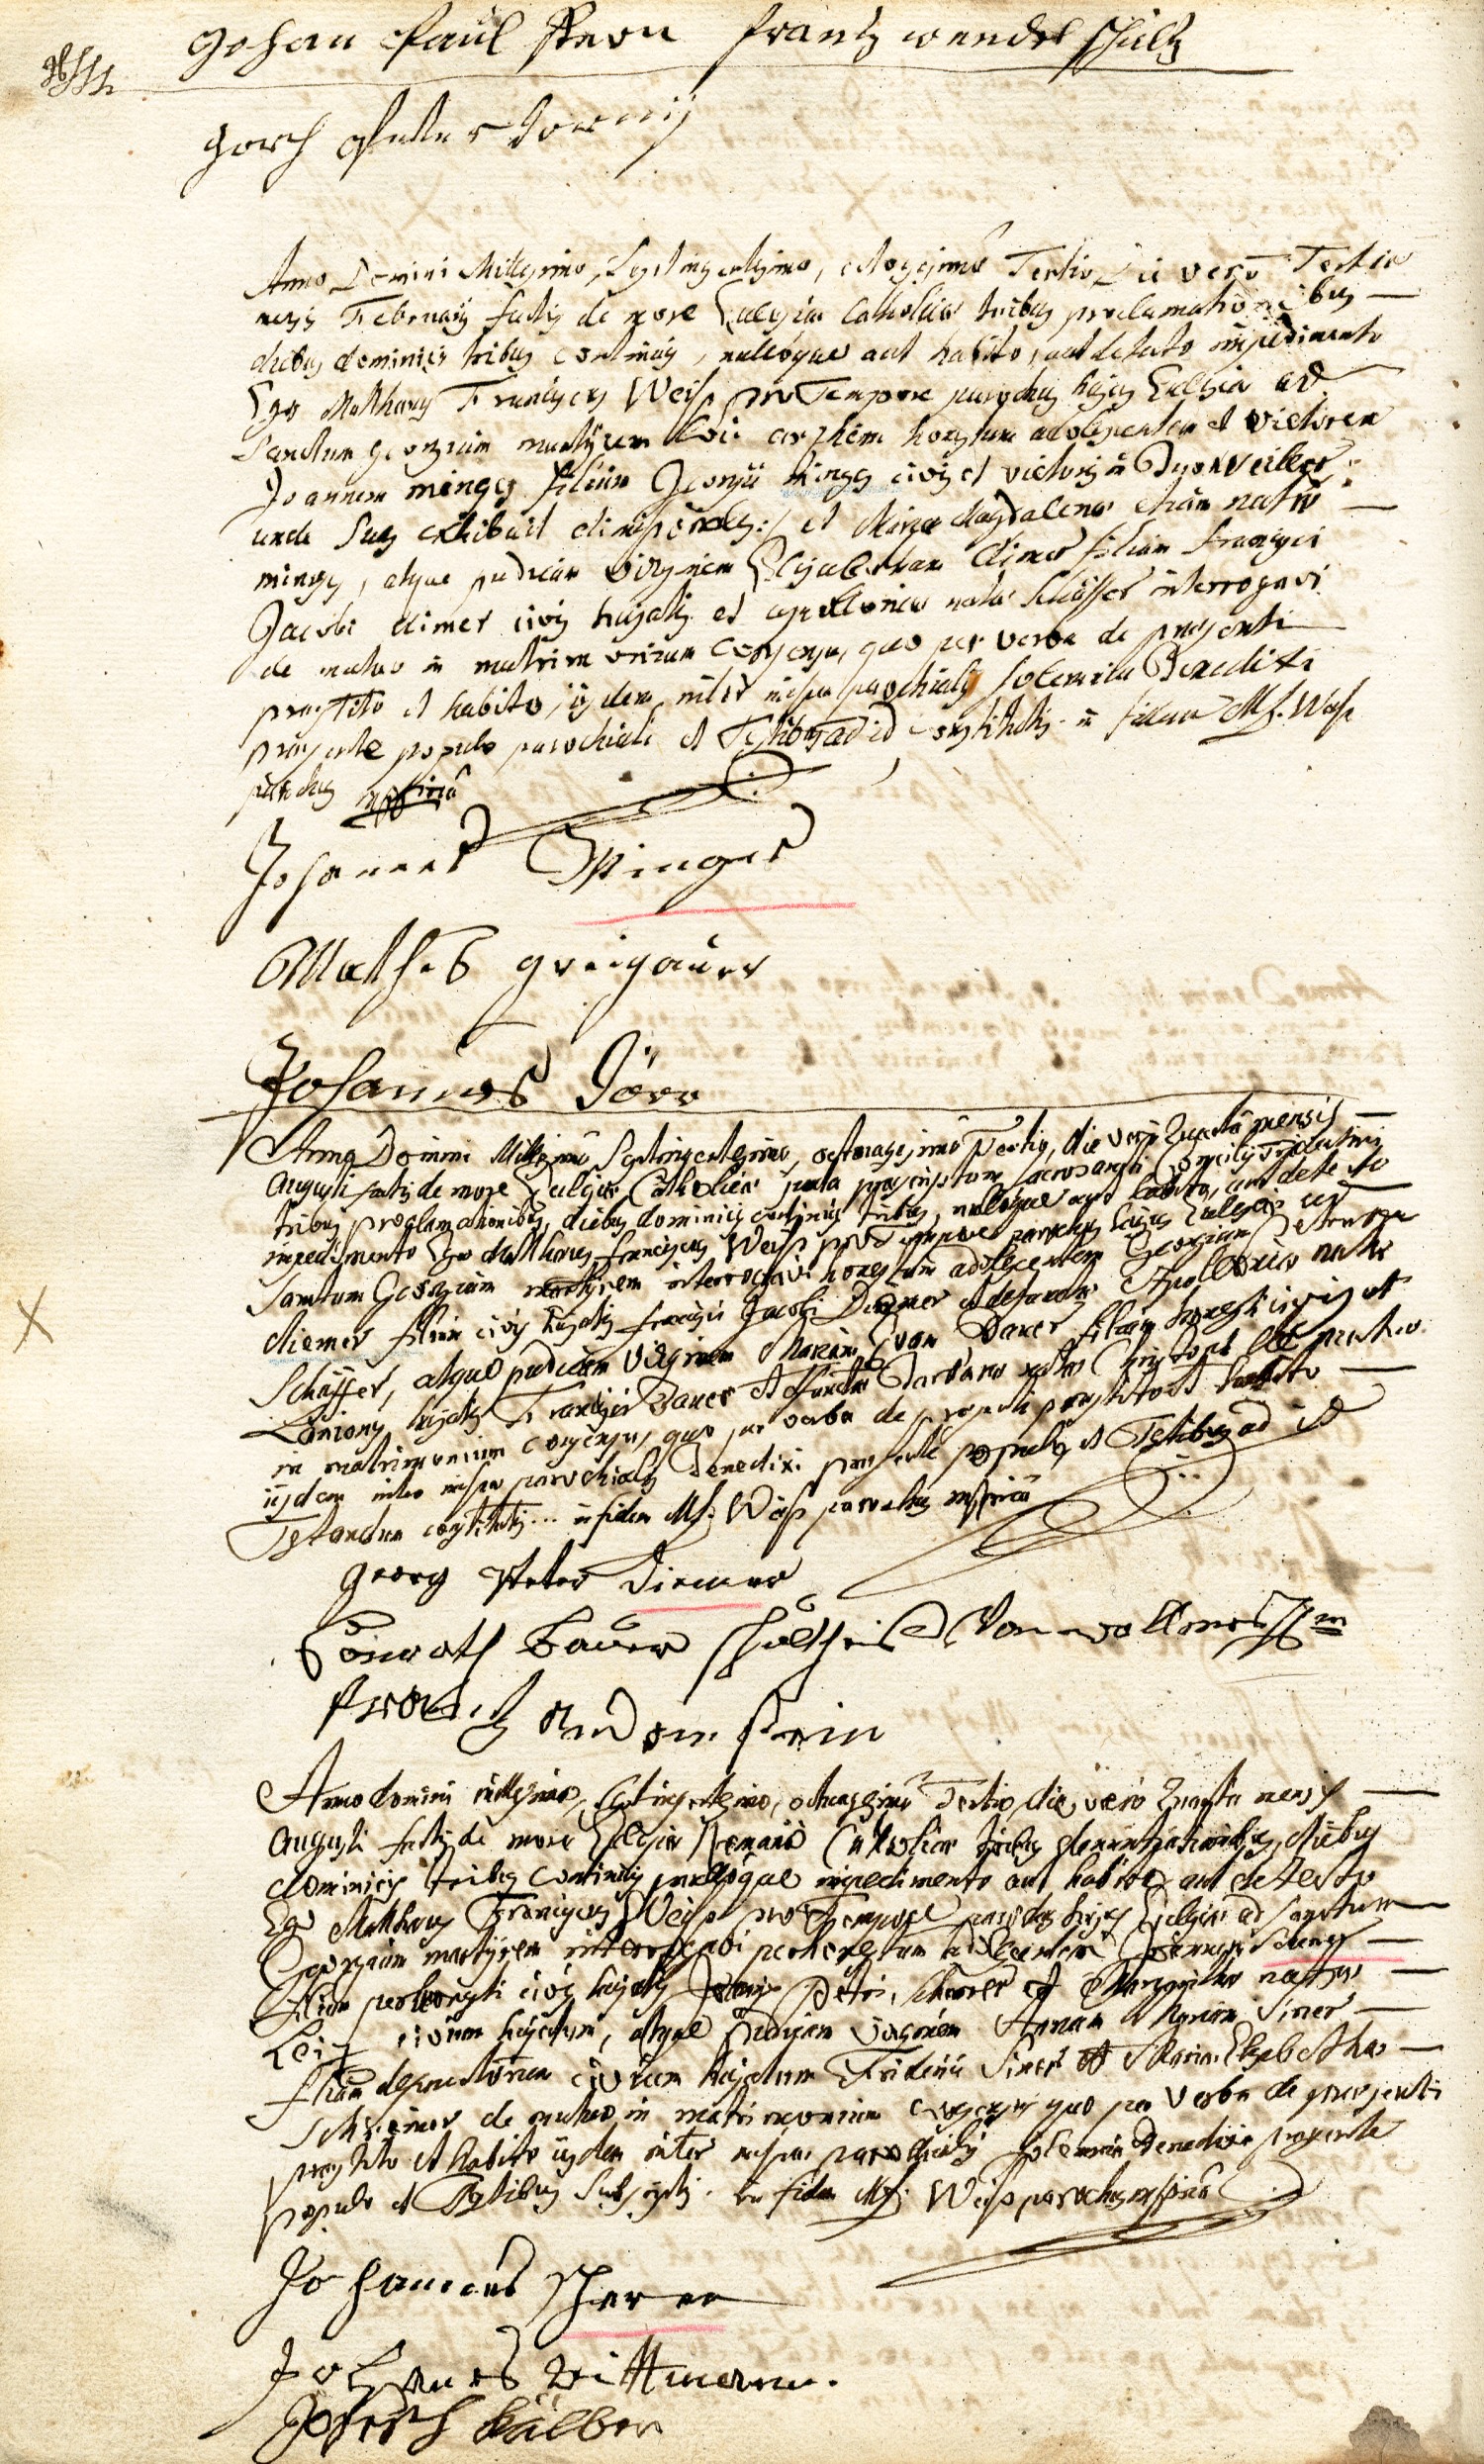 Johan Paul Stern Frantz wendel schultz
Anno Domini Millesimo, Septingentesimo, octogesimo Tertio Die vero Tertia
mensis Februarii factis de more Ecclesiae Catholicae tribus proclamationibus
diebus dominicis tribus continuis, nulloque aut habito, aut detecto impedimento
Ego Mathaeus Franciscus Weiss pro Tempore parochus hujus Ecclesiae ad
Sanctum Georgium martÿrem honestum adolescentem et
Joannem minges filium Georgii minges civis et in
unde suas exhibuit dimissoriales: et Mariae Magdalenae natae
minges, atque pudicam virginem Elisabetham dimer filiam Francisci
Jacobi dimer civis hujatis et apolloniae natae Schäffer interrogavi
de mutuo in matrimonium consensu, quo per verba de praesenti
praestito et habito, iisdem inter missae parochialis solemnia Benedixi
praesente populo parochiali et Testibus ad id constitutis. in fidem Mf. Weiss
parochus
Johannes Minges
Mathes
Johannes Dörr
Anno Domini Millesimo Septingentesimo, octuagesimo Tertio, die vero Quarta mensis
Augusti factis de more Ecclesiae Catholicae juxta praescriptum sacrosancti Concilii Tridentini
tribus proclamationibus, diebus dominicis continuis tribus, nulloque aut habito, aut detecto
impedimento Ego Matthaeus Franciscus Weiss pro Tempore parochus hujus Ecclesiae ad
Sanctum Georgium martÿrem interrogavi honestum adolescentem Georgium Petrum
diemer filium civis hujatis Francisci Jacobi Diemer et defunctae Apolloniae natae
Schäffer, atque pudicam Virginem Mariam Evam Bauer filiam honesti civis et
hujatis Francisci Bauer et defunctae Barbarae natae de mutuo
in matrimonium consensu, quo per verba de praesenti praestito et habito
iisdem inter missae parochialis Benedixi praesente populo et Testibus ad id
Testandum constitutis... in fidem Mf. Weiss parochus
Georg Peter Diemer
Conrath Bauer schultheis Von
Frantz Adam stein
Anno domini millesimo, Septingentesimo, octuagesimo Tertio, die vero Quarta mensis
Augusti factis de more Ecclesiae Romano Catholicae tribus denuntiationibus, diebus
dominicis tribus continuis nulloque impedimento aut habito, aut detecto
Ego Matthaeus Franciscus Weiss pro Tempore parochus hujus Ecclesiae ad Sanctum
Georgium martÿrem interrogavi perhonestum adolescentem Joannem
filium perhonesti civis hujatis Petri et Margarithae natae
civium hujatum, atque pudicam virginem Annam Mariam Siner
filiam defunctorum civium hujatum Siner et Maria Elisabetha
Schreiner de mutuo in matrimonium consensu quo per verba de praesenti
praestito et habito iisdem inter missae parochialis solemnia Benedixi praesente
populo et Testibus subscriptis. in fidem Mf. Weiss parochus
Johannes scherer
Johannes wittmann.
Joseph Kälber